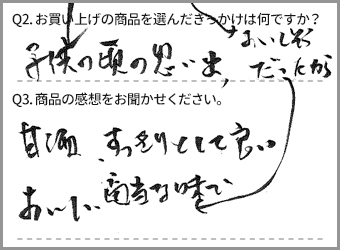 Q2. お買い上げの商品を選んだきっかけは何ですか？
子供の頃の思い出,
おいしそう
だったから
Q3. 商品の感想をお聞かせください。
甘酒 すっきりとして良い
おいしい 適当な味で